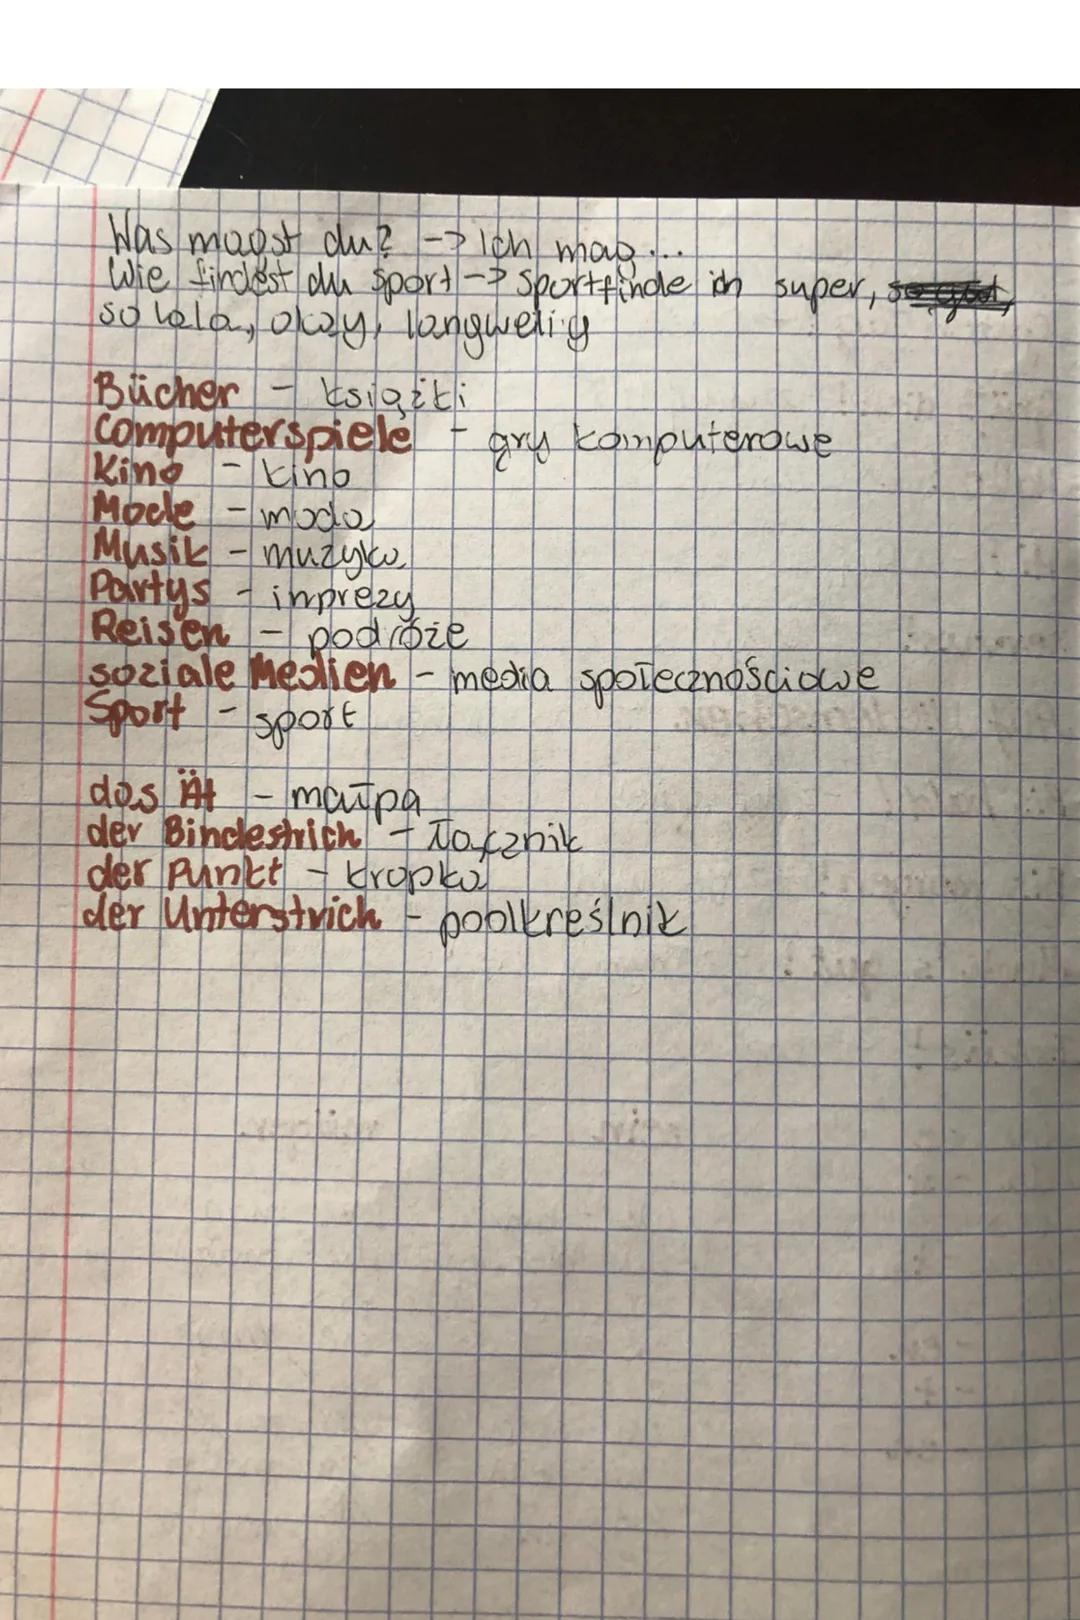 Was magst du? -> Ich mag...
Wie findest du Sport -> Sportfinde ich super,
so lala, okay, langweilig
Bücher - książki
Computerspiele - gry komputerowe
Kino - kino
Mode - moda
Musik - muzyka
Partys - inprezy
Reisen - podróże
soziale Medien - media społecznościowe
Sport - sport
das Ät - małpa
der Bindestrich - łącznik
der Punkt - kropka
der Unterstrich - podkreślnik